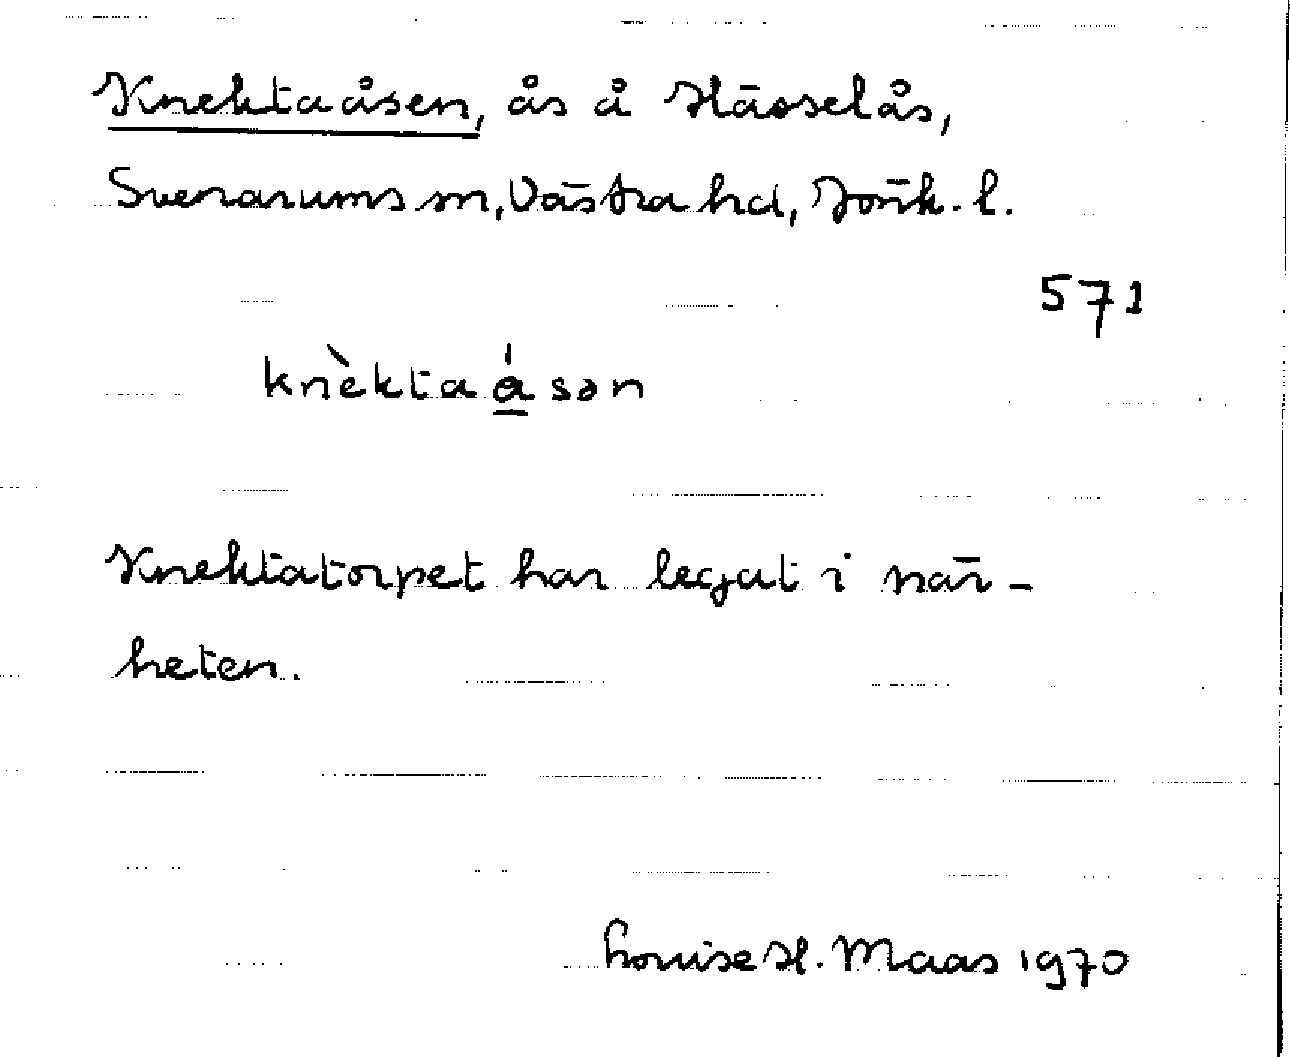 Knektaåsen, ås å Hässelås,
Svenarums sn, Västra hd, Jönk. l.
571
knèktaásən
Knektatorpet har legat i när-
heten.
Louise H. Maas 1970